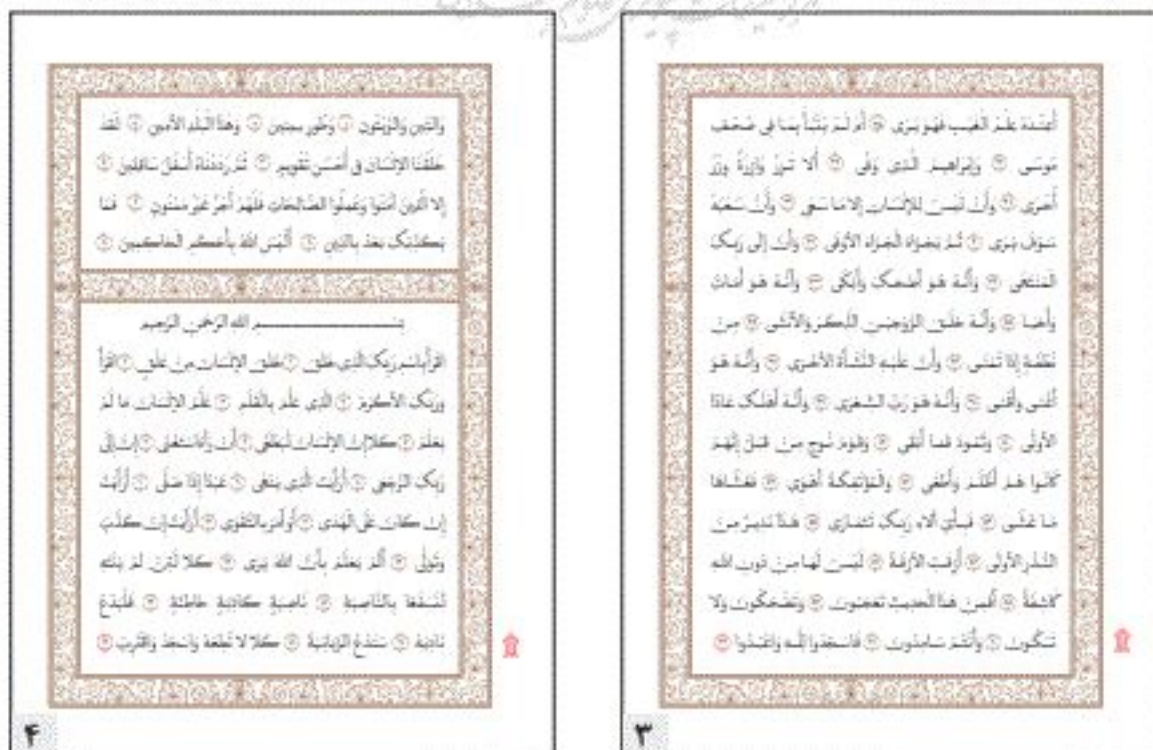 أَعِندَهُ عِلْمُ الْغَيْبِ فَهُوَ يَرَى ۞ أَمْ لَمْ يُنَبَّأْ بِمَا فِي صُحُفِ
مُوسَى ۞ وَإِبْرَاهِيمَ الَّذِي وَفَّى ۞ أَلَّا تَزِرُ وَازِرَةٌ وِزْرَ
أُخْرَى ۞ وَأَنْ لَيْسَ لِلْإِنْسَانِ إِلَّا مَا سَعَى ۞ وَأَنَّ سَعْيَهُ
سَوْفَ يُرَى ۞ ثُمَّ يُجْزَاهُ الْجَزَاءَ الْأَوْفَى ۞ وَأَنَّ إِلَى رَبِّكَ
الْمُنْتَهَى ۞ وَأَنَّهُ هُوَ أَضْحَكَ وَأَبْكَى ۞ وَأَنَّهُ هُوَ أَمَاتَ
وَأَحْيَا ۞ وَأَنَّهُ خَلَقَ الزَّوْجَيْنِ الذَّكَرَ وَالْأُنْثَى ۞ مِنْ
نُطْفَةٍ إِذَا تُمْنَى ۞ وَأَنَّ عَلَيْهِ النَّشْأَةَ الْأُخْرَى ۞ وَأَنَّهُ هُوَ
أَغْنَى وَأَقْنَى ۞ وَأَنَّهُ هُوَ رَبُّ الشِّعْرَى ۞ وَأَنَّهُ أَهْلَكَ عَادًا
الْأُولَى ۞ وَثَمُودَ فَمَا أَبْقَى ۞ وَقَوْمَ نُوحٍ مِنْ قَبْلُ إِنَّهُمْ
كَانُوا هُمْ أَظْلَمَ وَأَطْغَى ۞ وَالْمُؤْتَفِكَةَ أَهْوَى ۞ فَغَشَّاهَا
مَا غَشَّى ۞ فَبِأَيِّ آلَاءِ رَبِّكَ تَتَمَارَى ۞ هَذَا نَذِيرٌ مِنَ
النُّذُرِ الْأُولَى ۞ أَزِفَتِ الْآزِفَةُ ۞ لَيْسَ لَهَا مِنْ دُونِ اللهِ
كَاشِفَةٌ ۞ أَفَمِنْ هَذَا الْحَدِيثِ تَعْجَبُونَ ۞ وَتَضْحَكُونَ وَلَا
تَبْكُونَ ۞ وَأَنْتُمْ سَامِدُونَ ۞ فَاسْجُدُوا لِلَّهِ وَاعْبُدُوا ۞
۳
وَالتِّينِ وَالزَّيْتُونِ ۞ وَطُورِ سِينِينَ ۞ وَهَذَا الْبَلَدِ الْأَمِينِ ۞ لَقَدْ
خَلَقْنَا الْإِنْسَانَ فِي أَحْسَنِ تَقْوِيمٍ ۞ ثُمَّ رَدَدْنَاهُ أَسْفَلَ سَافِلِينَ ۞
إِلَّا الَّذِينَ آمَنُوا وَعَمِلُوا الصَّالِحَاتِ فَلَهُمْ أَجْرٌ غَيْرُ مَمْنُونٍ ۞ فَمَا
يُكَذِّبُكَ بَعْدُ بِالدِّينِ ۞ أَلَيْسَ اللهُ بِأَحْكَمِ الْحَاكِمِينَ ۞
بِسْمِ اللهِ الرَّحْمَنِ الرَّحِيمِ
اقْرَأْ بِاسْمِ رَبِّكَ الَّذِي خَلَقَ ۞ خَلَقَ الْإِنْسَانَ مِنْ عَلَقٍ ۞ اقْرَأْ
وَرَبُّكَ الْأَكْرَمُ ۞ الَّذِي عَلَّمَ بِالْقَلَمِ ۞ عَلَّمَ الْإِنْسَانَ مَا لَمْ
يَعْلَمْ ۞ كَلَّا إِنَّ الْإِنْسَانَ لَيَطْغَى ۞ أَنْ رَآهُ اسْتَغْنَى ۞ إِنَّ إِلَى
رَبِّكَ الرُّجْعَى ۞ أَرَأَيْتَ الَّذِي يَنْهَى ۞ عَبْدًا إِذَا صَلَّى ۞ أَرَأَيْتَ
إِنْ كَانَ عَلَى الْهُدَى ۞ أَوْ أَمَرَ بِالتَّقْوَى ۞ أَرَأَيْتَ إِنْ كَذَّبَ
وَتَوَلَّى ۞ أَلَمْ يَعْلَمْ بِأَنَّ اللهَ يَرَى ۞ كَلَّا لَئِنْ لَمْ يَنْتَهِ
لَنَسْفَعًا بِالنَّاصِيَةِ ۞ نَاصِيَةٍ كَاذِبَةٍ خَاطِئَةٍ ۞ فَلْيَدْعُ
نَادِيَهُ ۞ سَنَدْعُ الزَّبَانِيَةَ ۞ كَلَّا لَا تُطِعْهُ وَاسْجُدْ وَاقْتَرِبْ ۞
۴